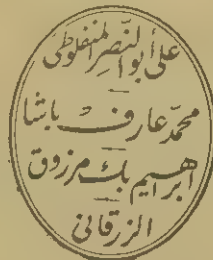 على أبو النصر المنفلوطى
محمد عارف باشا
ابراهيم بك مرزوق
الزرقانى